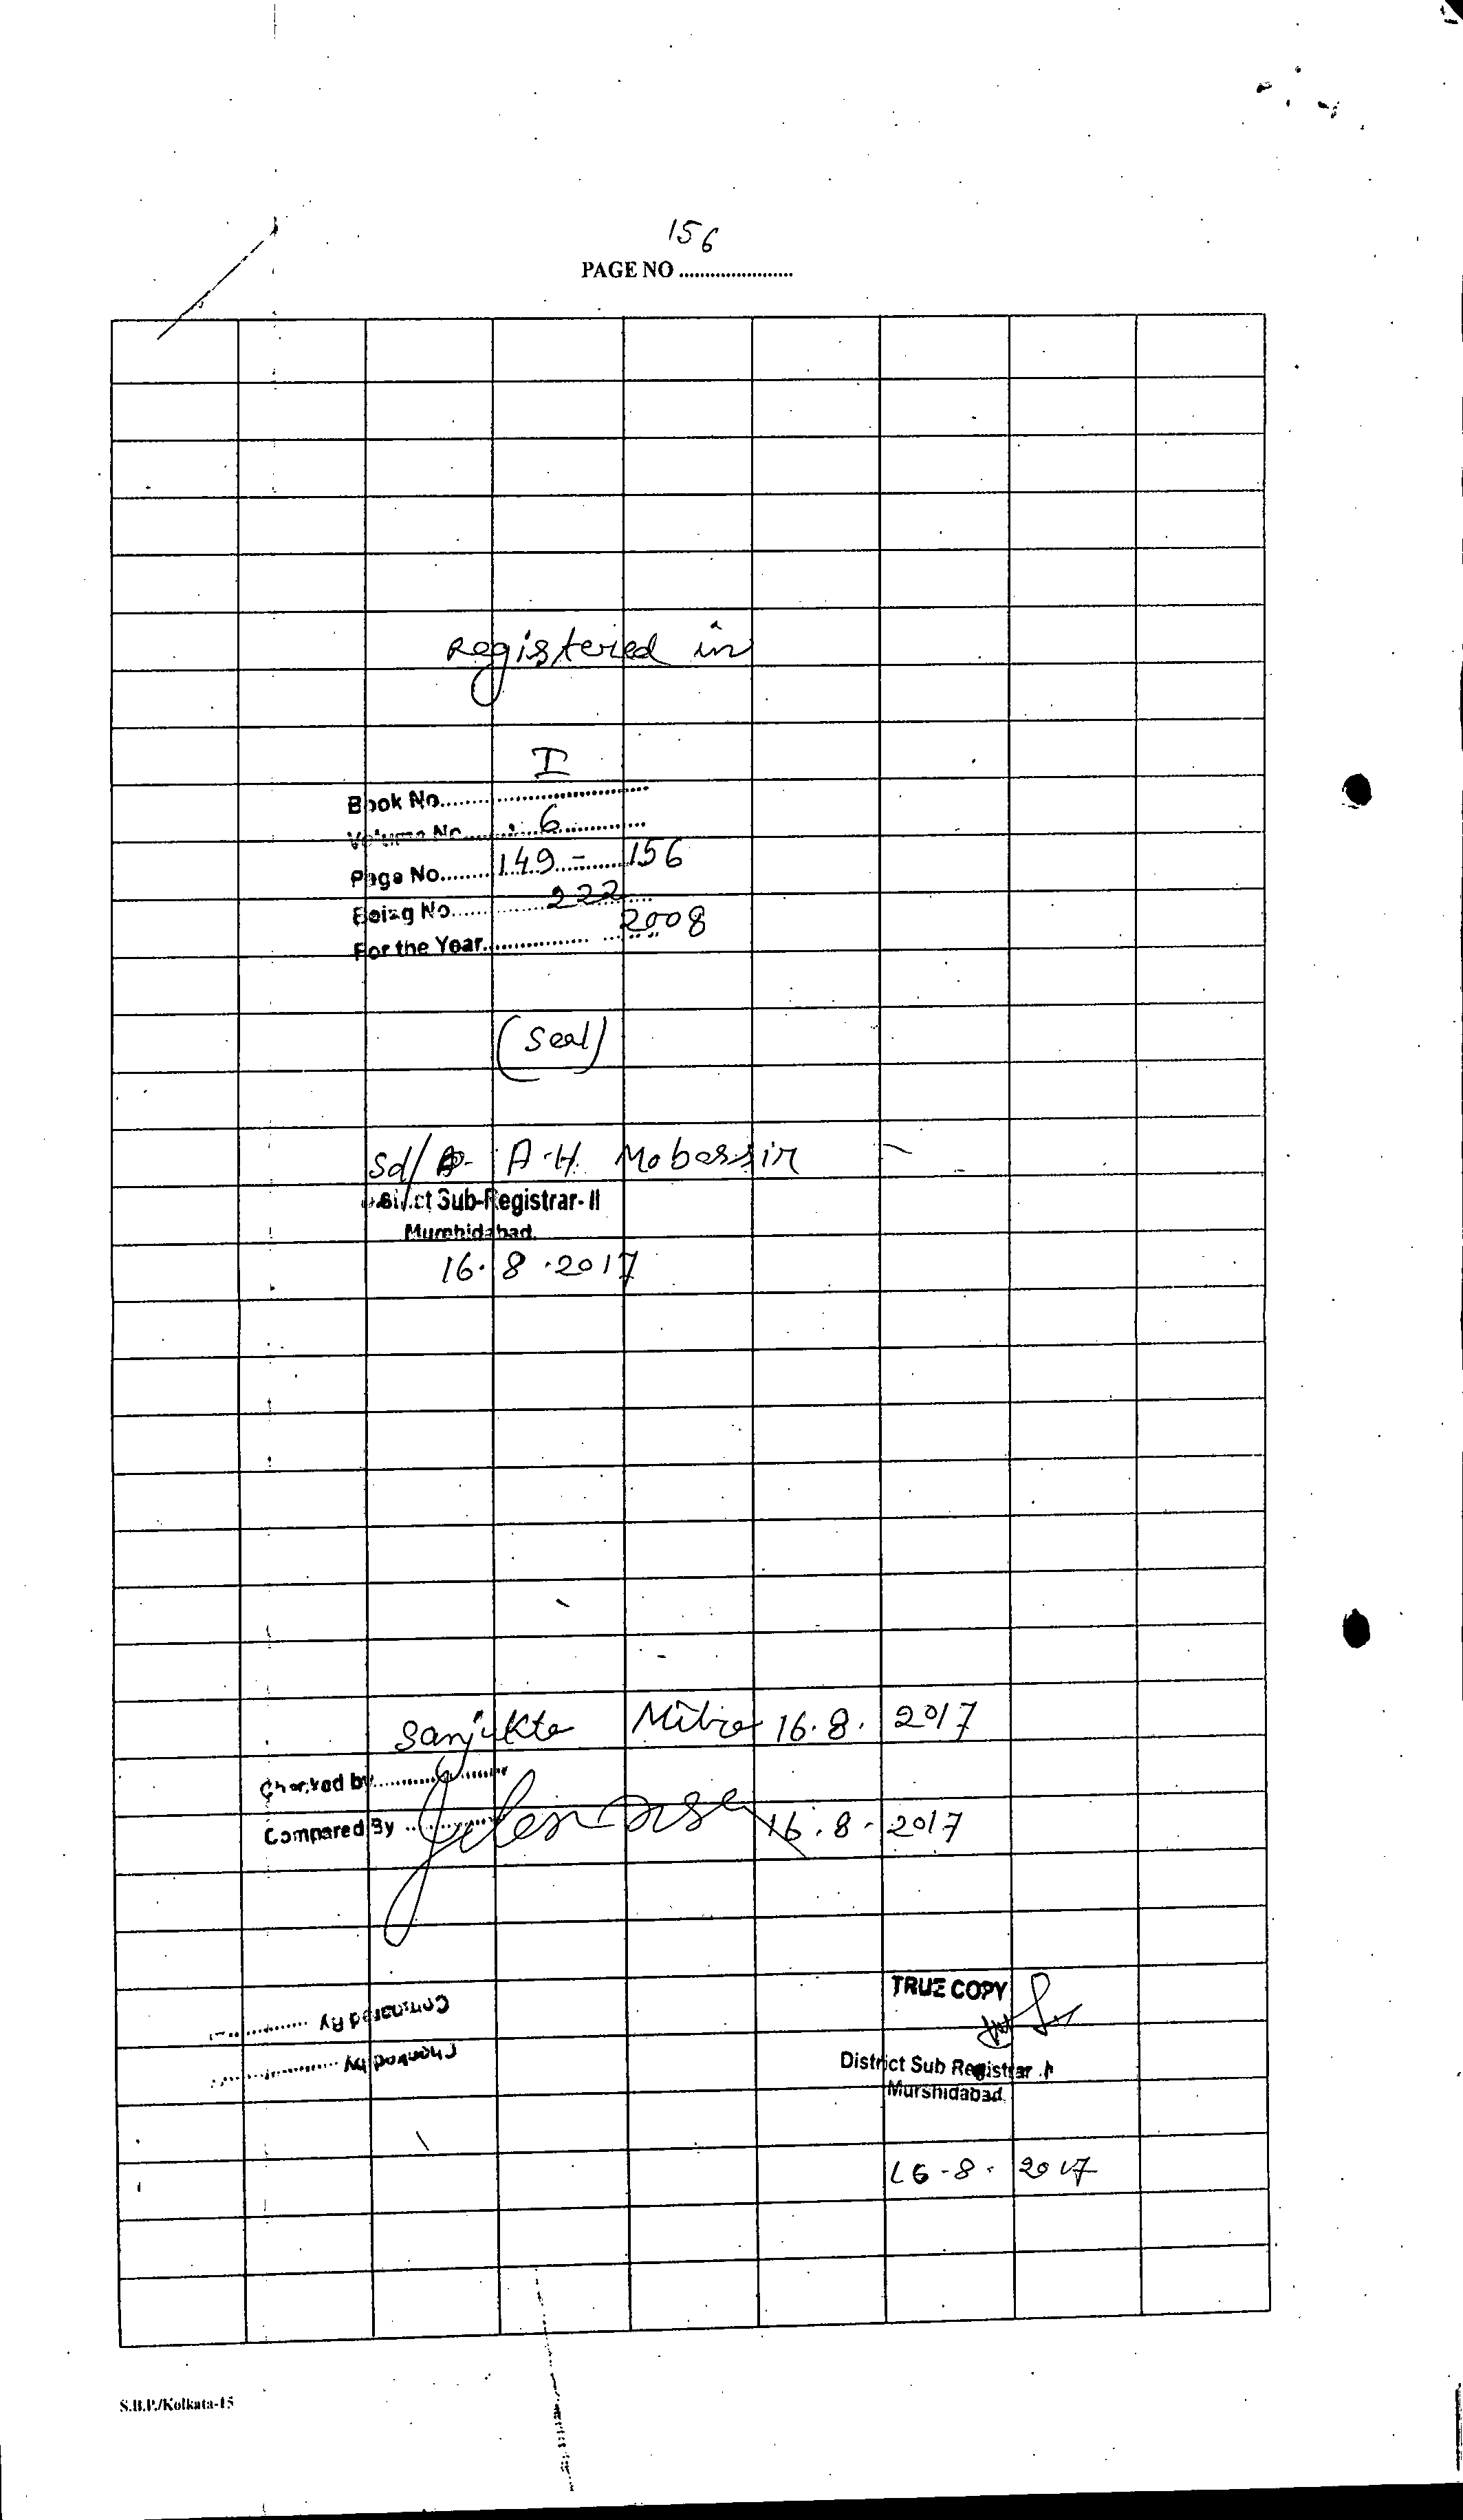 156
PAGE NO ......................
Registered in
I
Book No..........
Volume No......... 6 ...............
Page No......... 149 - ...... 156
Being No........... 222 ......
For the Year................ 2008
(Seal)
Sd/ A.H. Mobassir
District Sub-Registrar-II
Murshidabad.
16.8.2017
Sanjukta Mitra 16.8.2017
Checked by......................
Compared By ............ 16.8.2017
TRUE COPY
Compared By ................
Checked by ................
District Sub Registrar
Murshidabad.
16-8-2017
S.B.P./Kolkata-15